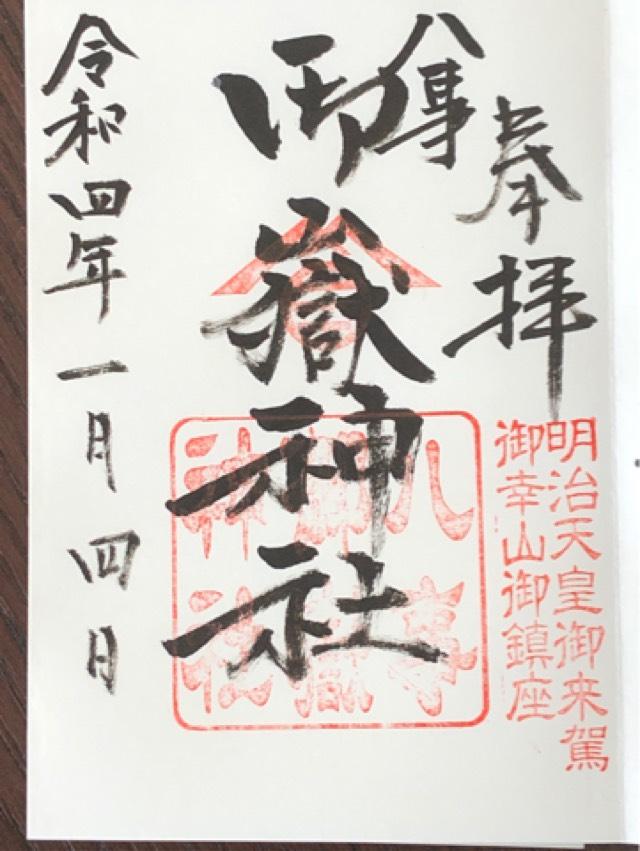 奉拝
八事
御嶽神社
令和四年一月四日
明治天皇御来駕
御幸山御鎮座
八事
御嶽
神社